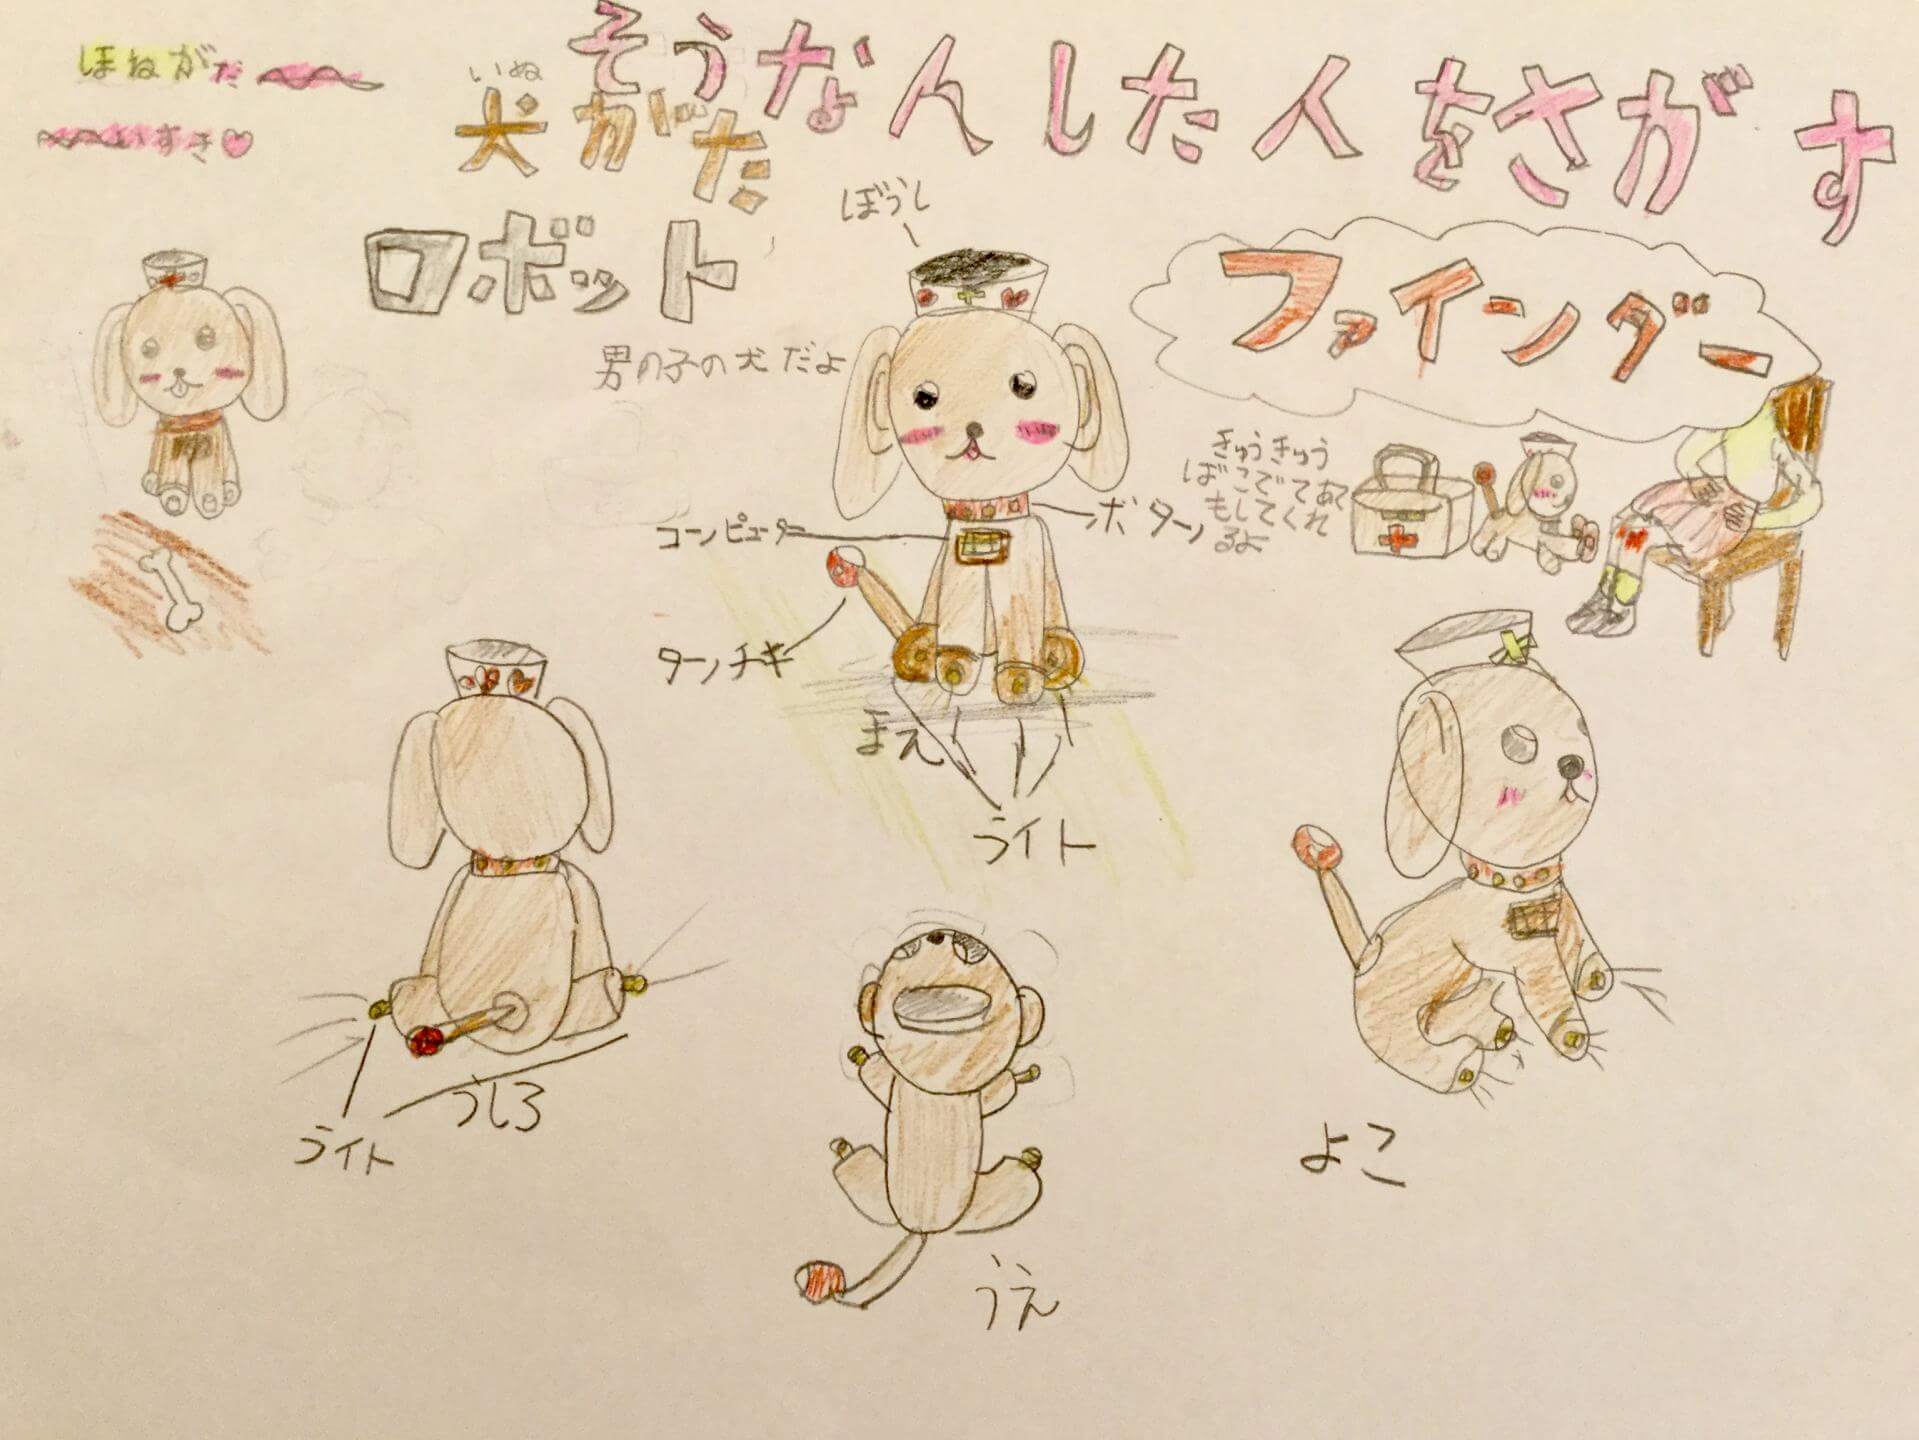 ほねがだ〜
〜いすき♥
そうなんした人をさがす
いぬ
犬がた
ロボット
ファインダー
ぼうし
男の子の犬だよ
きゅうきゅう
ばこでてあて
もしてくれ
るよ
コンピューター
ボタン
タンチキ
まえ
ライト
うしろ
ライト
うえ
よこ